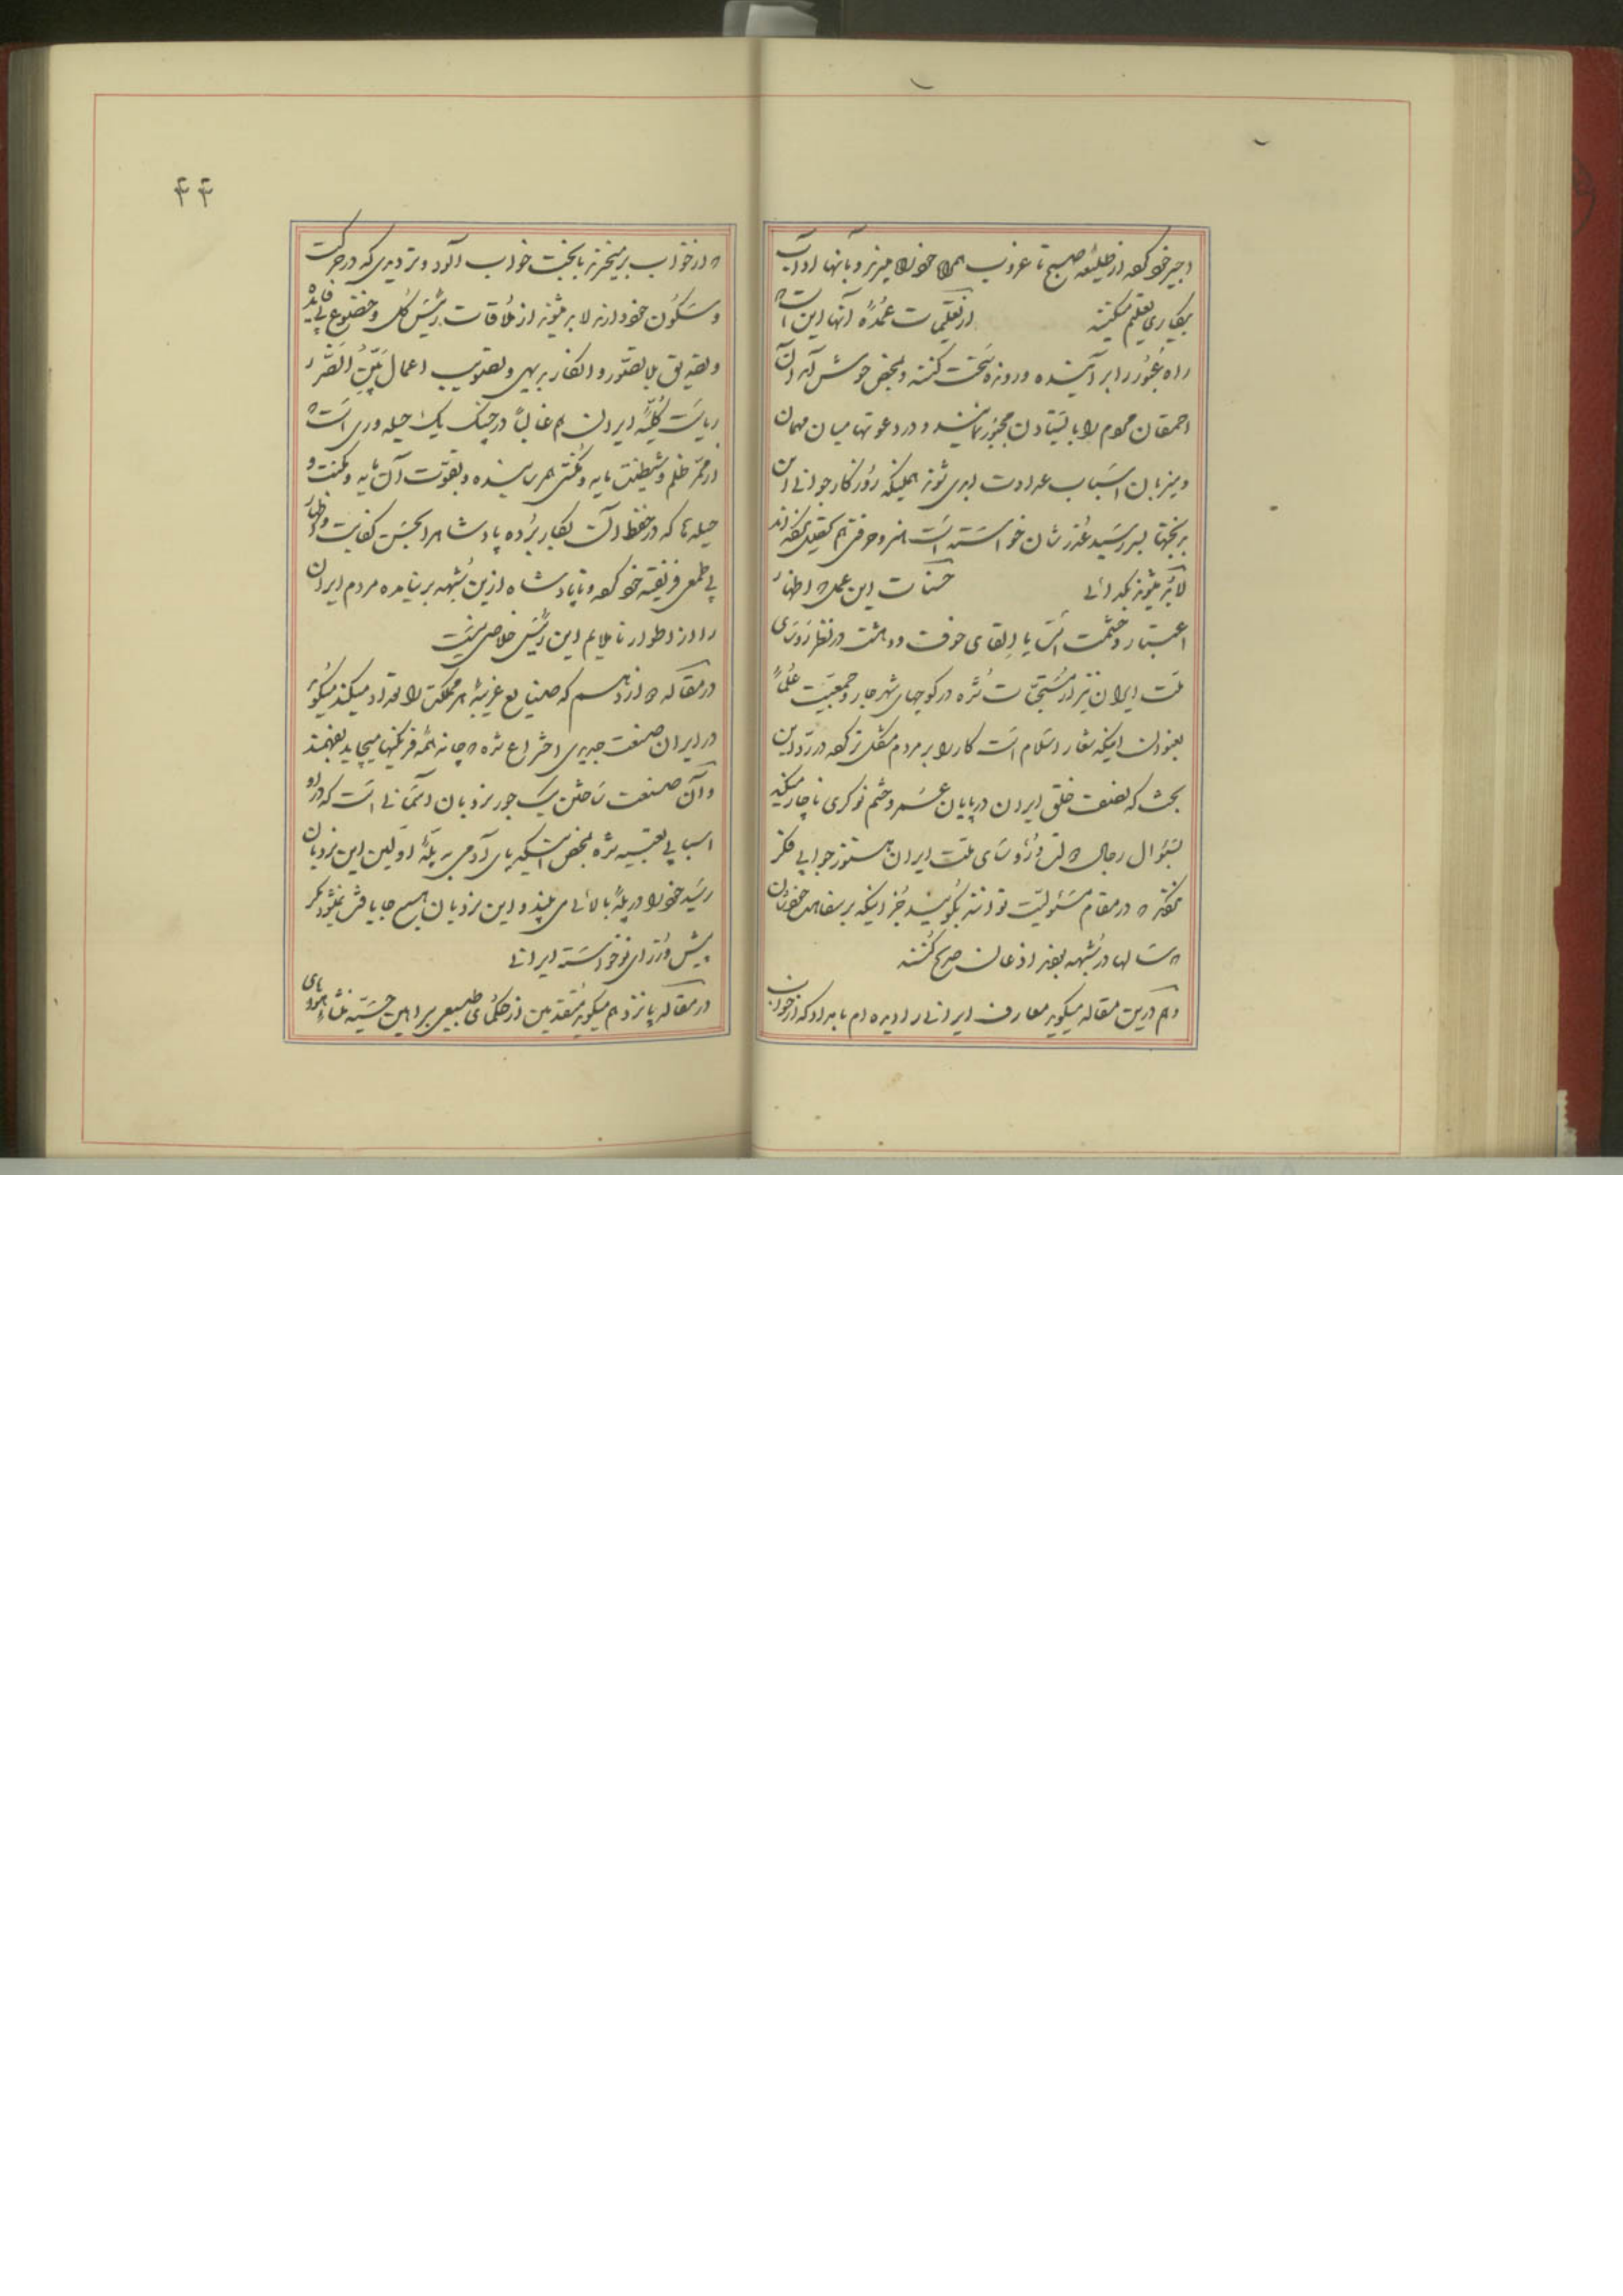 اجیر خود کرده از طلیعه صبح تا غروب همراه خود میبرند و بآنها آداب
بیکاری تعلیم میکنند از تعلیمات عمده آنها این است که
راه عبور را بر آینده و رونده سخت کنند و بمحض خوش آمد آن
احمقان مردم را بایستادن مجبور نمایند و در دعوتها میان مهمان
و میزبان اسباب عداوت ابدی شوند همینکه روزگار جوانی این
بدبختها بسر رسید عذرشان خواسته است هنر و حرفتی هم که تحصیل نکرده‌اند
لابد میشوند بگدائی حسنات این عمل که اظهار
اعتبار و حشمت است یا القای خوف و دهشت در نظر رؤسای
ملت ایران نیز از مستحبات شده در کوچهای شهر جار و جمعیت علما
بعنوان اینکه شعار اسلام است کار را بر مردم مشکل تر کرده در رد این
بحث که نصف خلق ایران در پایان عمر و ختم نوکری ناچار میکند
بسؤال رجال دولت و رؤسای ملت ایران هنوز جوابی فکر
نکرده‌اند که در مقام مسئولیت توانند بگویند جز اینکه بر سفاهت خودشان
که سالها در شبهه بودند اذعان صریح کنند
و هم درین مقاله میگوید معارف ایرانی را دیده‌ام بامداد که از خواب
۴۴
که از خواب برمیخیزند با بخت خواب آلود و تردیدی که در حرکت
و سکون خود دارند لابد میشوند از ملاقات رئیس کل و خضوع بی فایده
و تصدیق بلا تصور و انکار بدیهی و تصویب اعمال بیّن الضرر
ریاست کلیه ایران هم غالباً در چنک یک حیله‌وری است که
از ممر ظلم و شیطنت مایه و مکنتی بهم رسانیده و بقوت آن مایه و مکنت و
حیله‌ها که در حفظ آن بکار برده پادشاه را بحسن کفایت و اظهار
بی طمعی فریفته خود کرده و تا پادشاه ازین شبهه بر نیامده مردم ایران
را از اطوار ناملایم این رئیس خلاصی نیست
در مقاله دوازدهم که صنایع غریبه هر مملکت را تعداد میکند میگوید
در ایران صنعت جدیدی اختراع شده که چانه همه فرنگیها میچاید بفهمند
و آن صنعت ساختن یک جور نردبان آسمانی است که در او
اسبابی تعبیه شده بمحض اینکه پای آدمی به پلهٔ اولین این نردبان
رسید خود را در پلهٔ بالائی می بیند و این نردبان هیچ جا یافت نمیشود مگر
پیش وزرای نوخواسته ایرانی
در مقاله پانزدهم میگوید متقدمین از حکمای طبیعی براهین حسیه